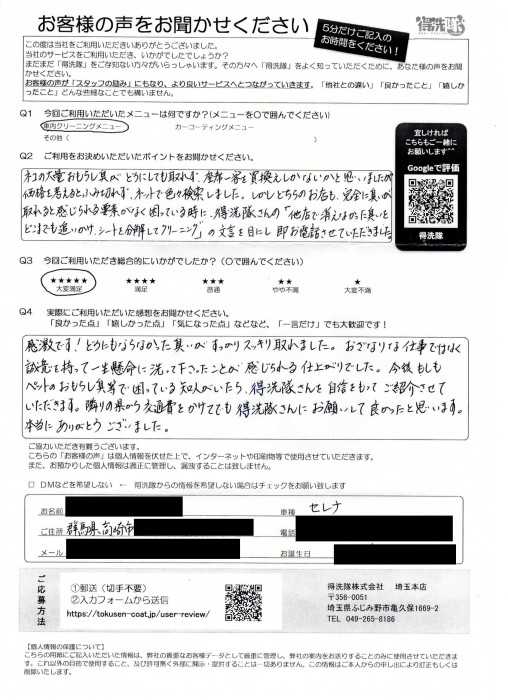 お客様の声をお聞かせください
5分だけご記入の
お時間をください！
得洗隊
この度は当社をご利用いただきありがとうございました。
当社のサービスをご利用いただき、いかがでしたでしょうか？
まだまだ「得洗隊」をご存知ない方々がいらっしゃいます。その方々へ「得洗隊」をよく知っていただくために、あなた様の声をお聞かせください。
お客様の声が「スタッフの励み」にもなり、より良いサービスへとつながっていきます。「他社との違い」「良かったこと」「嬉しかったこと」どんな些細なことでも構いません。
Q1 今回ご利用いただいたメニューは何ですか?(メニューを○で囲んでください)
車内クリーニングメニュー カーコーティングメニュー
その他（ ）
宜しければ
こちらもご一緒に
お願いします^^
Googleで評価
得洗隊
Q2 ご利用をお決めいただいたポイントをお聞かせください。
ネコの大量おもらし臭がどうにも取れず、座席一客を買換えしかないかと思いましたが
価格を考えるとふみ切れず、ネットで色々検索しました。しかしどちらのお店も、完全に臭いが
取れると感じられる要素がなく困っている時に、得洗隊さんの「他店で消えなかった臭いを
どこまでも追いかけ、シートを分解してクリーニング」の文言を目にし即お電話させていただきました
Q3 今回ご利用いただき総合的にいかがでしたか？（○で囲んでください）
★★★★★ ★★★★ ★★★ ★★ ★
大変満足 満足 普通 やや不満 大変不満
Q4 実際にご利用いただいた感想をお聞かせください。
「良かった点」「嬉しかった点」「気になった点」などなど、「一言だけ」でも大歓迎です！
感激です！どうにもならなかった臭いがすっかりスッキリ取れました。おざなりな仕事ではなく
誠意を持って一生懸命に洗って下さったことが感じられる仕上がりでした。今後もしも
ペットのおもらし臭等で困っている知人がいたら、得洗隊さんを自信をもってご紹介させて
いただきます。隣りの県から交通費をかけてでも得洗隊さんにお願いして良かったと思います。
本当にありがとうございました。
ご協力いただき有難うございます。
こちらの「お客様の声」は個人情報を伏せた上で、インターネットや印刷物等で使用させていただきます。
また、お預かりした個人情報は適正に管理し、漏洩することは致しません。
□ DMなどを希望しない ← 得洗隊からの情報を希望しない場合はチェックをお願い致します
お名前 車種 セレナ
ご住所 群馬県高崎市 電話
メール お誕生日
ご応募方法
①郵送（切手不要）
②入力フォームから送信
https://tokusen-coat.jp/user-review/
得洗隊株式会社 埼玉本店
〒356-0051
埼玉県ふじみ野市亀久保1669-2
TEL 049-265-8186
【個人情報の保護について】
こちらの用紙にご記入いただいた情報は、弊社の貴重なお客様データとして厳重に管理し、弊社の案内をお送りすることのみに使用させていただきます。これ以外の目的で使用すること、及び許可無く外部に開示・提供することは一切ありません。この情報はご本人からの申し出により訂正もしくは削除いたします。